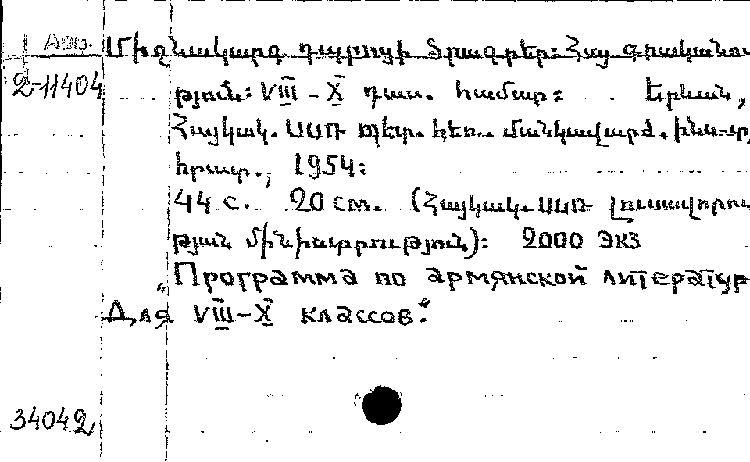 Միջնակարգ դպրոցի ծրագրեր: Հայ գրականու
2-11404 թյուն: VIII - X դաս. համար: Երևան,
Հայկակ. ՍՍՌ պետ. հեռ. մանկավարժ. ինս-տ,
հրատ., 1954:
44 с. 20 см. (Հայկակ. ՍՍՌ լուսավորու
թյան մինիստրություն): 2000 экз
"Программа по армянской литератур
Для VIII-X классов".
34042